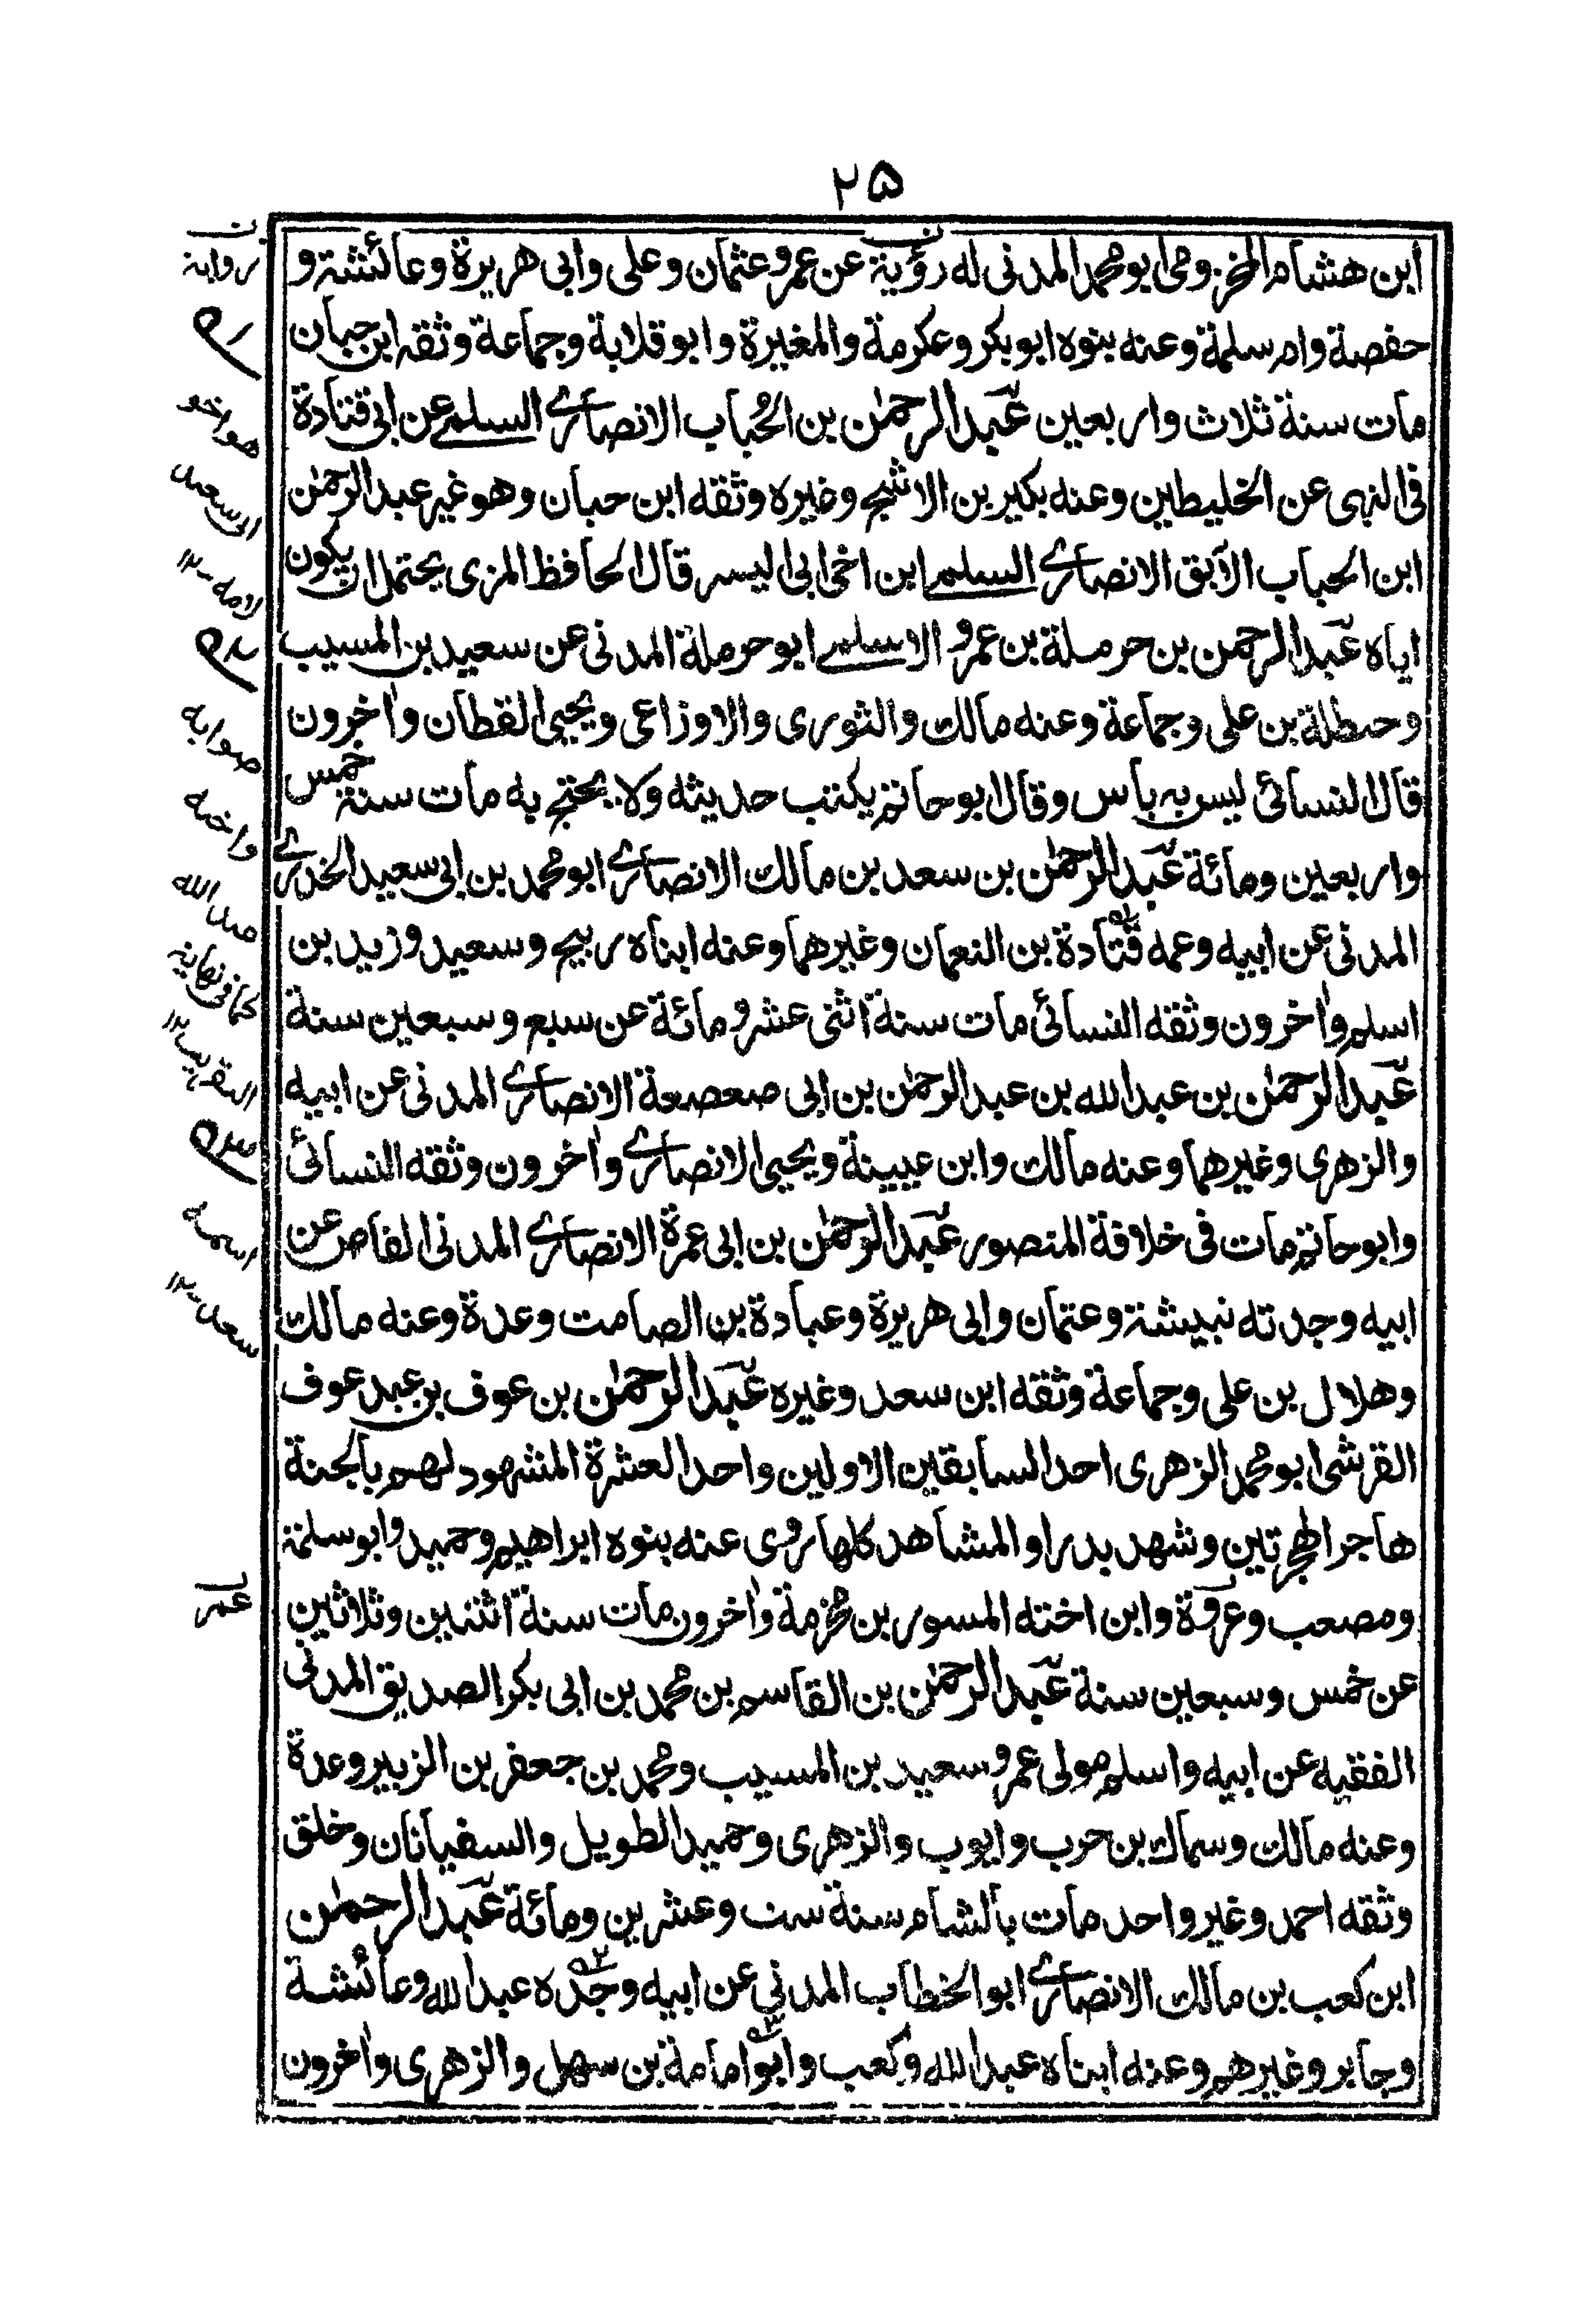 ٢٥
ابن هشام المخزومی ابو محمد المدنی له رؤية عن عمر و عثمان و علی وابی هريرة وعائشة و
حفصة وام سلمة وعنه بنوه ابو بكر و عكرمة والمغيرة وابو قلابة وجماعة وثقه ابن حبان
مات سنة ثلاث واربعين عبد الرحمٰن بن الحُباب الانصاری السلمی عن ابی قتادة
فی النهی عن الخليطين وعنه بكير بن الاشج وغيره وثقه ابن حبان وهو غير عبد الرحمٰن
ابن الحباب الآتق الانصاری السلمی ابن اخی ابی اليسر قال الحافظ المزی يحتمل ان يكون
اياه عبد الرحمن بن حرملة بن عمرو الاسلمی ابو حرملة المدنی عن سعيد بن المسيب
وحنظلة بن علی وجماعة وعنه مالك والثوری والاوزاعی ويحيی القطان واٰخرون
قال النسائی ليس به باس وقال ابو حاتم يكتب حديثه ولا يحتج به مات سنة خمس
واربعين ومائة عبد الرحمٰن بن سعد بن مالك الانصاری ابو محمد بن ابی سعيد الخدری
المدنی عن ابيه وعمه قتادة بن النعمان وغيرهما وعنه ابناه ربيح وسعيد وزيد بن
اسلم واٰخرون وثقه النسائی مات سنة اثنی عشر ومائة عن سبع وسبعين سنة
عبد الرحمٰن بن عبد الله بن عبد الرحمٰن بن ابی صعصعة الانصاری المدنی عن ابيه
والزهری وغيرهما وعنه مالك وابن عيينة ويحيی الانصاری واٰخرون وثقه النسائی
وابو حاتم مات فی خلافة المنصور عبد الرحمٰن بن ابی عمرة الانصاری المدنی القاص عن
ابيه وجدته نبيشة وعثمان وابی هريرة وعبادة بن الصامت وعدة وعنه مالك
وهلال بن علی وجماعة وثقه ابن سعد وغيره عبد الرحمٰن بن عوف بن عبد عوف
القرشی ابو محمد الزهری احد السابقين الاولين واحد العشرة المشهود لهم بالجنة
هاجر الهجرتين وشهد بدرا والمشاهد كلها روی عنه بنوه ابراهيم وحميد وابو سلمة
ومصعب وعروة وابن اخته المسور بن مخرمة واٰخرون مات سنة اثنتين وثلاثين
عن خمس وسبعين سنة عبد الرحمٰن بن القاسم بن محمد بن ابی بكر الصديق المدنی
الفقيه عن ابيه واسلم مولی عمر وسعيد بن المسيب ومحمد بن جعفر بن الزبير وعدة
وعنه مالك وسماك بن حرب وايوب والزهری وحميد الطويل والسفيانان وخلق
وثقه احمد وغير واحد مات بالشام سنة ست وعشرين ومائة عبد الرحمٰن
ابن كعب بن مالك الانصاری ابو الخطاب المدنی عن ابيه وجده عبد الله وعائشة
وجابر وغيرهم وعنه ابناه عبد الله وكعب وابو امامة بن سهل والزهری واٰخرون
ن
رواية
م١
هو اخو
ابی سعيد
لامه ١٢
م٢
صوابه
واخيه
عبد الله
كما فی نهاية
التقريب ١٢
م٣
اسمه
سعد ١٢
عمر